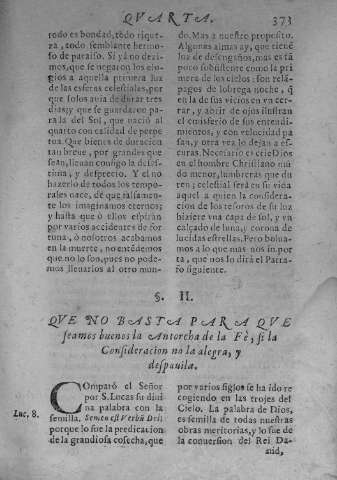 QVARTA. 373
todo es bondad, todo rique-
za, todo semblante hermo-
so de paraiso. Si yà no dezi-
mos, que se negaron los elo-
gios a aquella primera luz
de las esferas celestiales, por
que solos avia de durar tres
dias; y que se guardaron pa-
ra la del Sol, que naciò al
quarto con calidad de perpe-
tua. Que bienes de duracion
tan breue, por grandes que
sean, lleuan consigo la desis-
tima, y desprecio. Y el no
hazerlo de todos los tempo-
rales nace, de que falsamen-
te los imaginamos eternos;
y hasta que ò ellos espiran
por varios accidentes de for-
tuna, ò nosotros acabamos
en la muerte, no entẽdemos
que no lo son, pues no pode-
mos lleuarlos al otro mun-
do. Mas a nuestro proposito.
Algunas almas ay, que tienẽ
luz de desengaños, mas es tã
poco subsistente como la pri-
mera de los cielos: son relã-
pagos de lobrega noche, q̃
en la de sus vicios en vn cer-
rar, y abrir de ojos ilustran
el emisferio de sus entendi-
mientos, y con velocidad pas-
san, y otra vez lo dejan a es-
curas. Necessario es crie Dios
en el hombre Christiano mũ-
do menor, lumbreras que du-
ren; celestial serà en su vida
aquel a quien la considera-
cion de los tesoros de su luz
hiziere vna capa de sol, y vn
calçado de luna, y corona de
lucidas estrellas. Pero bolua-
mos a lo que mas nos impor-
ta, que nos lo dirà el Parra-
fo siguiente.
§. II.
QVE NO BASTA PARA QVE
seamos buenos la Antorcha de la Fè, si la
Consideracion no la alegra, y
despauila.
Luc. 8.
COmparò el Señor
por S. Lucas su divi
na palabra con la
semilla. Semen est Verbũ Dei:
porque lo fue la predicacion
de la grandiosa cosecha, que
por varios siglos se ha ido re
cogiendo en las trojes del
Cielo. La palabra de Dios,
es semilla de todas nuestras
obras meritorias, y lo fue de
la conuersion del Rei Da-
uid,